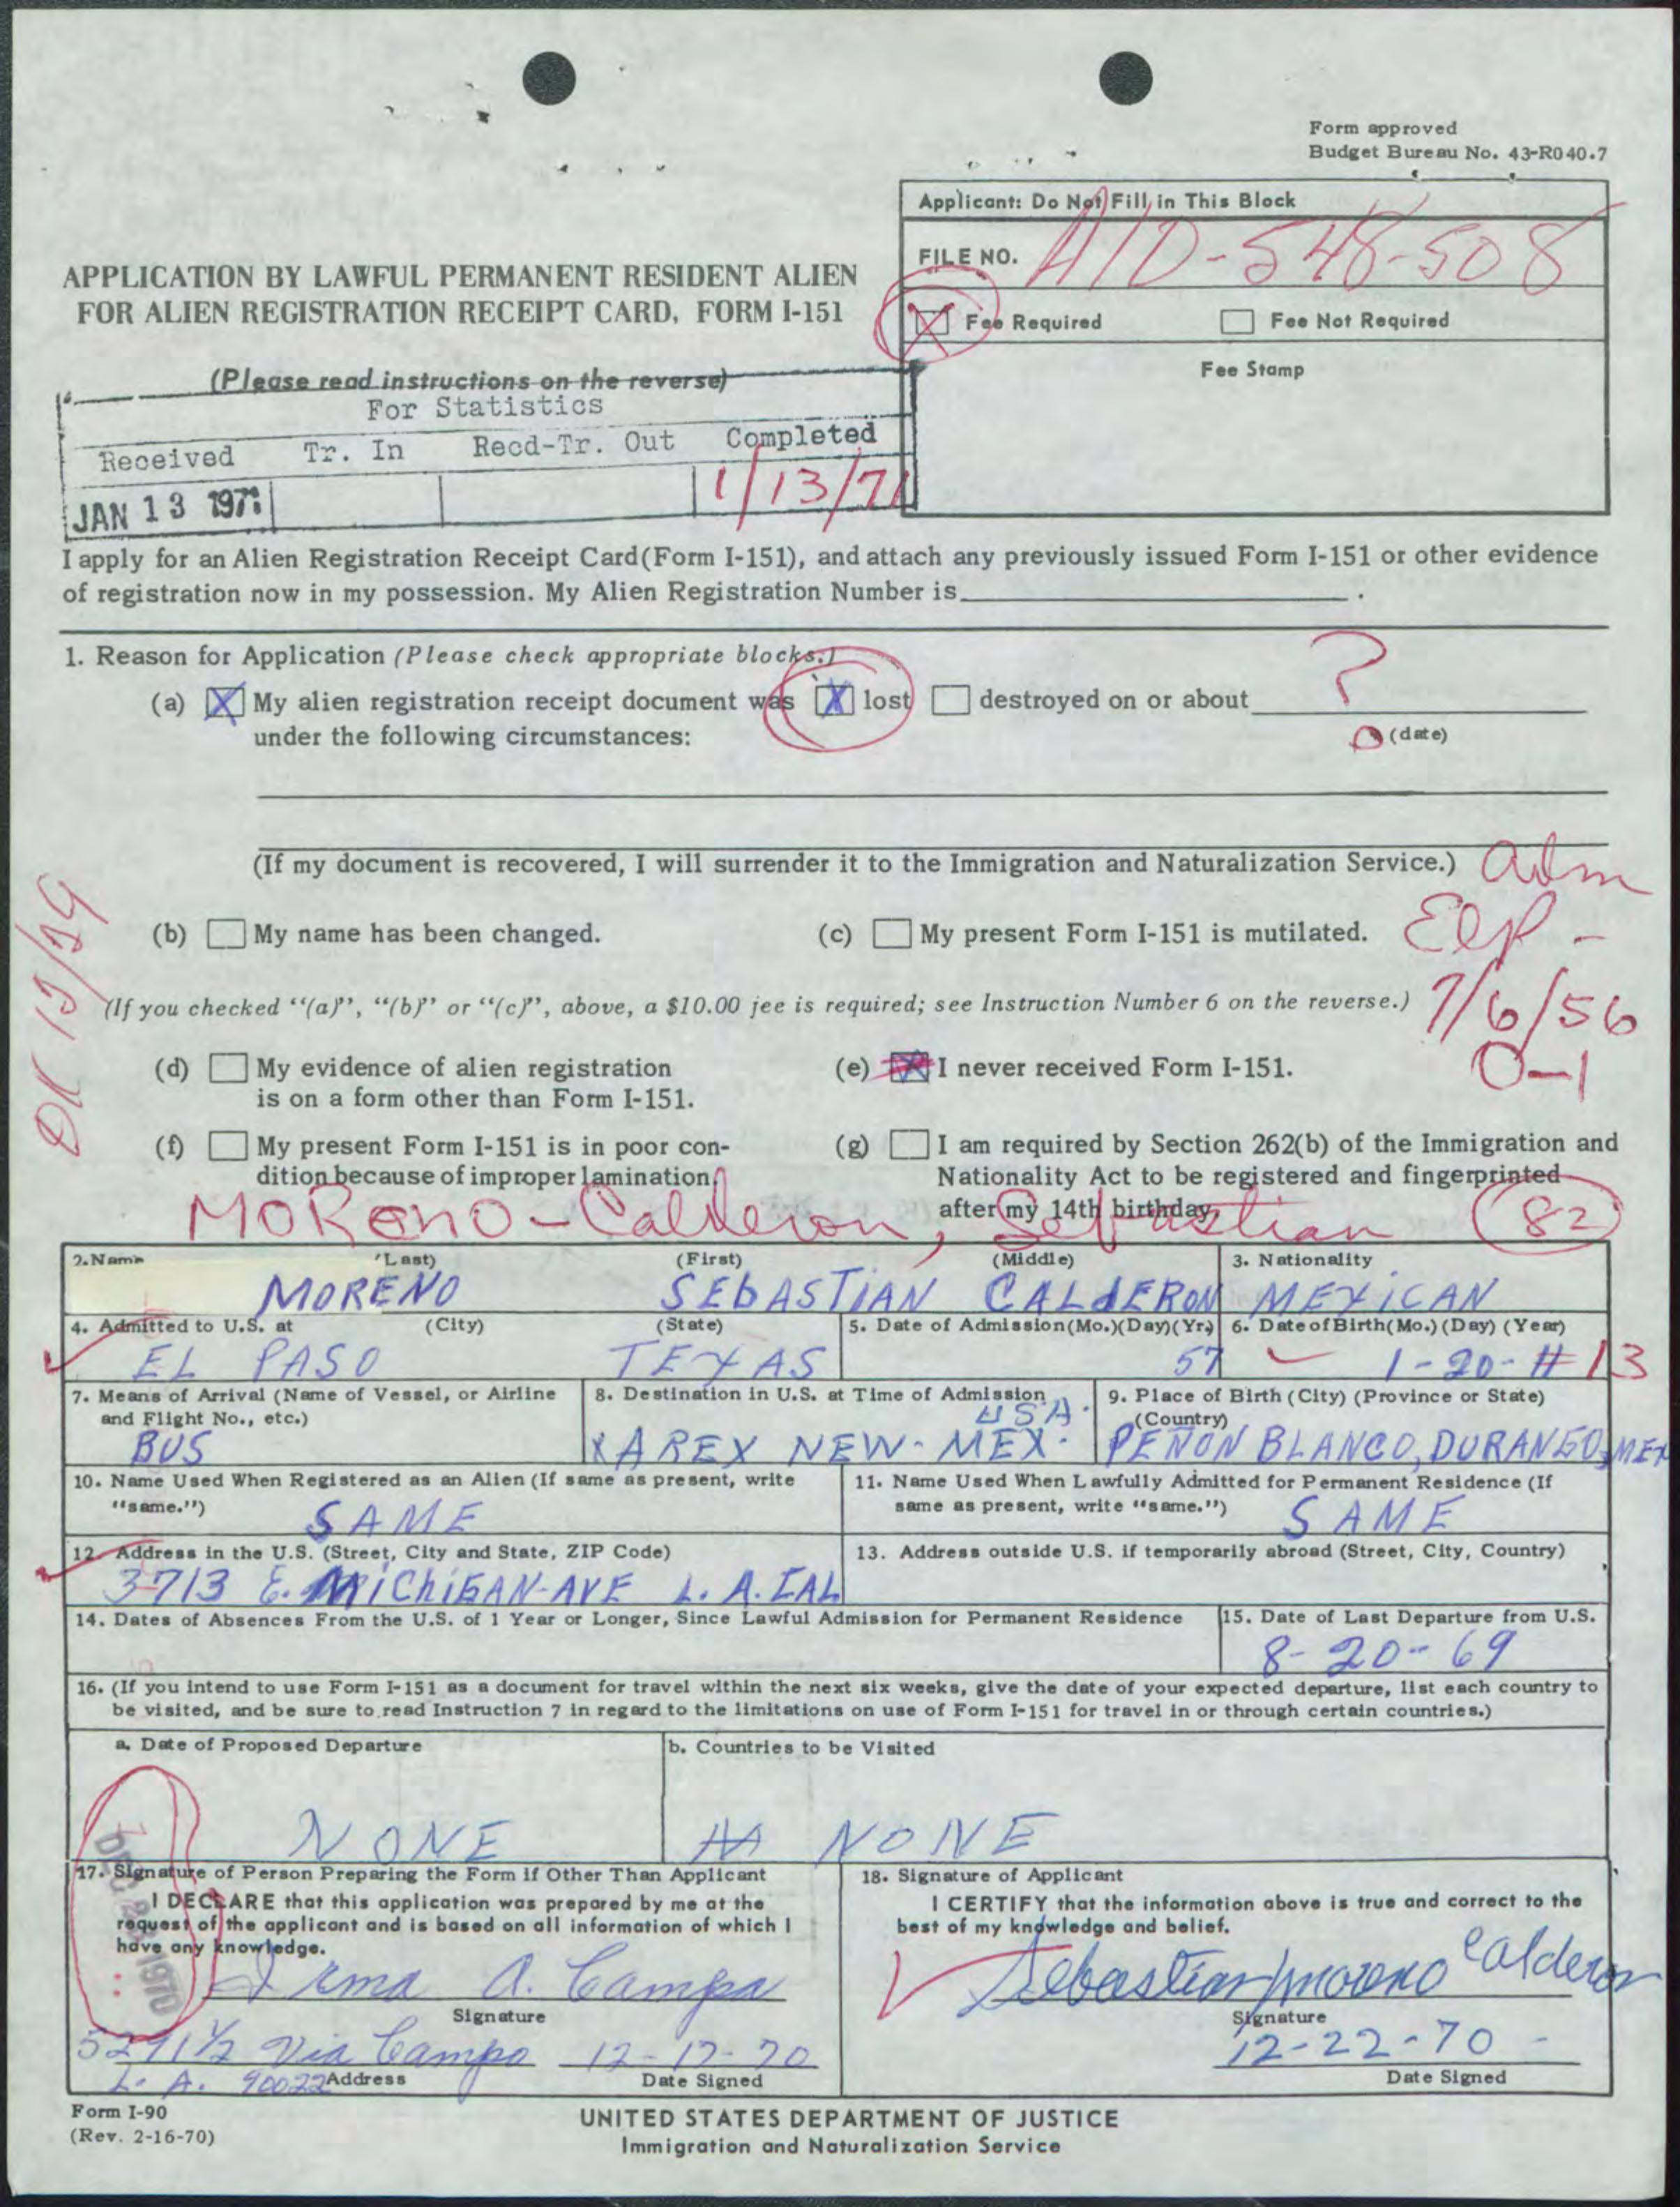 Form approved
Budget Bureau No. 43-R040.7
Applicant: Do Not Fill in This Block
FILE NO. A10-548-508
APPLICATION BY LAWFUL PERMANENT RESIDENT ALIEN
FOR ALIEN REGISTRATION RECEIPT CARD, FORM I-151
X Fee Required Fee Not Required
Fee Stamp
(Please read instructions on the reverse)
For Statistics
Received Tr. In Recd-Tr. Out Completed
JAN 13 1971 1/13/71
I apply for an Alien Registration Receipt Card(Form I-151), and attach any previously issued Form I-151 or other evidence
of registration now in my possession. My Alien Registration Number is .
1. Reason for Application (Please check appropriate blocks.)
(a) X My alien registration receipt document was X lost destroyed on or about ?
under the following circumstances: (date)
(If my document is recovered, I will surrender it to the Immigration and Naturalization Service.)
adm
ELP -
7/6/56
O-1
(b) My name has been changed. (c) My present Form I-151 is mutilated.
(If you checked "(a)", "(b)" or "(c)", above, a $10.00 fee is required; see Instruction Number 6 on the reverse.)
(d) My evidence of alien registration
is on a form other than Form I-151.
(e) X I never received Form I-151.
(f) My present Form I-151 is in poor con-
dition because of improper lamination.
(g) I am required by Section 262(b) of the Immigration and
Nationality Act to be registered and fingerprinted
after my 14th birthday.
Moreno-Calderon, Sebastian 82
2. Name (Last) (First) (Middle) 3. Nationality
MORENO SEBASTIAN CALDERON MEXICAN
4. Admitted to U.S. at (City) (State) 5. Date of Admission(Mo.)(Day)(Yr.) 6. Date of Birth(Mo.)(Day)(Year)
EL PASO TEXAS 57 1-20-11 13
7. Means of Arrival (Name of Vessel, or Airline
and Flight No., etc.)
BUS
8. Destination in U.S. at Time of Admission
USA.
XAREX NEW-MEX.
9. Place of Birth (City) (Province or State)
(Country)
PEÑON BLANCO, DURANGO, MEX
10. Name Used When Registered as an Alien (If same as present, write
"same.") SAME
11. Name Used When Lawfully Admitted for Permanent Residence (If
same as present, write "same.") SAME
12. Address in the U.S. (Street, City and State, ZIP Code)
3713 E. MICHIGAN-AVE L.A. CAL
13. Address outside U.S. if temporarily abroad (Street, City, Country)
14. Dates of Absences From the U.S. of 1 Year or Longer, Since Lawful Admission for Permanent Residence
15. Date of Last Departure from U.S.
8-20-69
16. (If you intend to use Form I-151 as a document for travel within the next six weeks, give the date of your expected departure, list each country to
be visited, and be sure to read Instruction 7 in regard to the limitations on use of Form I-151 for travel in or through certain countries.)
a. Date of Proposed Departure b. Countries to be Visited
NONE NONE
DEC 28 1970
17. Signature of Person Preparing the Form if Other Than Applicant
I DECLARE that this application was prepared by me at the
request of the applicant and is based on all information of which I
have any knowledge.
Irma A. Campa
Signature
5271 1/2 Via Campo 12-17-70
L. A. 90022 Address Date Signed
18. Signature of Applicant
I CERTIFY that the information above is true and correct to the
best of my knowledge and belief.
Sebastian moreno Calderon
Signature
12-22-70
Date Signed
Form I-90
(Rev. 2-16-70)
UNITED STATES DEPARTMENT OF JUSTICE
Immigration and Naturalization Service